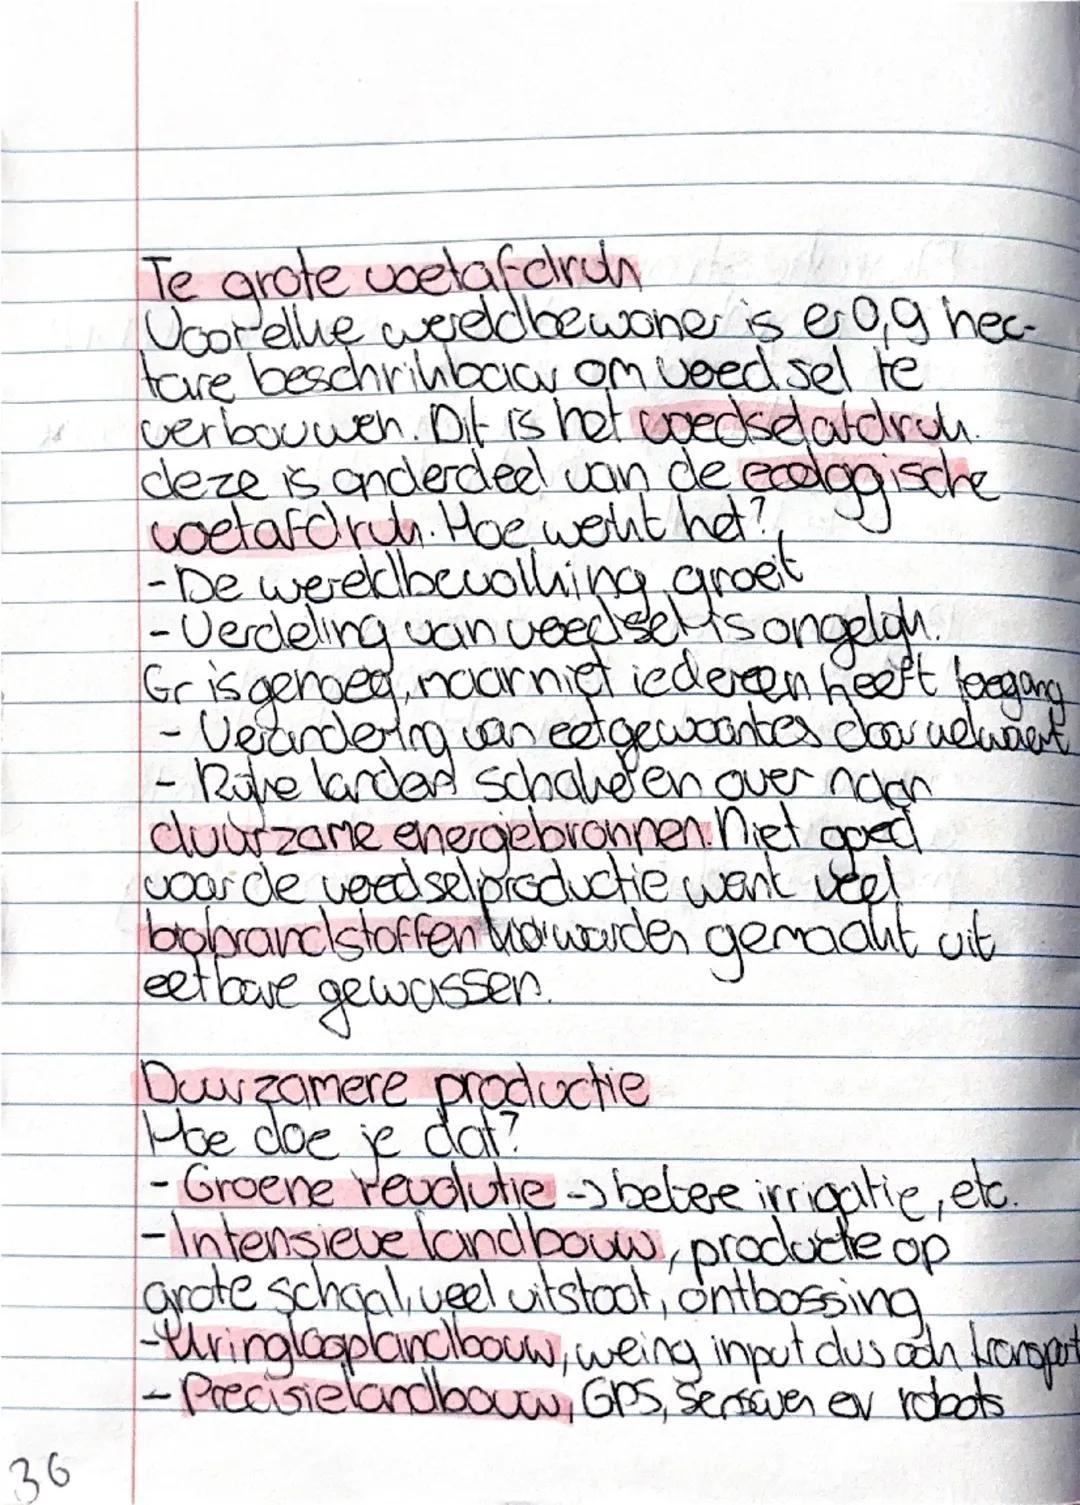 Te grote voetafdruk
Voor elke wereldbewoner is er 0,9 hec-
tare beschrikbaar om voedsel te
verbouwen. Dit is het voedselafdruk.
deze is onderdeel van de ecologgische
voetafdruk. Hoe werkt het?
- De wereldbevolking groeit
- Verdeling van voedsel is ongelijk.
Er is genoeg, maar niet iedereen heeft toegang
- Verandering van eetgewoontes door welvaert
- Rijke landen schakelen over naar
duurzame energiebronnen. Niet goed
voor de voedselproductie want veel
biobrandstoffen worden gemaakt uit
eetbare gewassen.
Duurzamere productie
Hoe doe je dat?
- Groene revolutie -> betere irrigatie, etc.
- Intensieve landbouw, producte op
grote schaal, veel uitstoot, ontbossing
- Kringlooplandbouw, weing input dus ook transport
- Precisielandbouw, GPS, Sensoren en robots
36